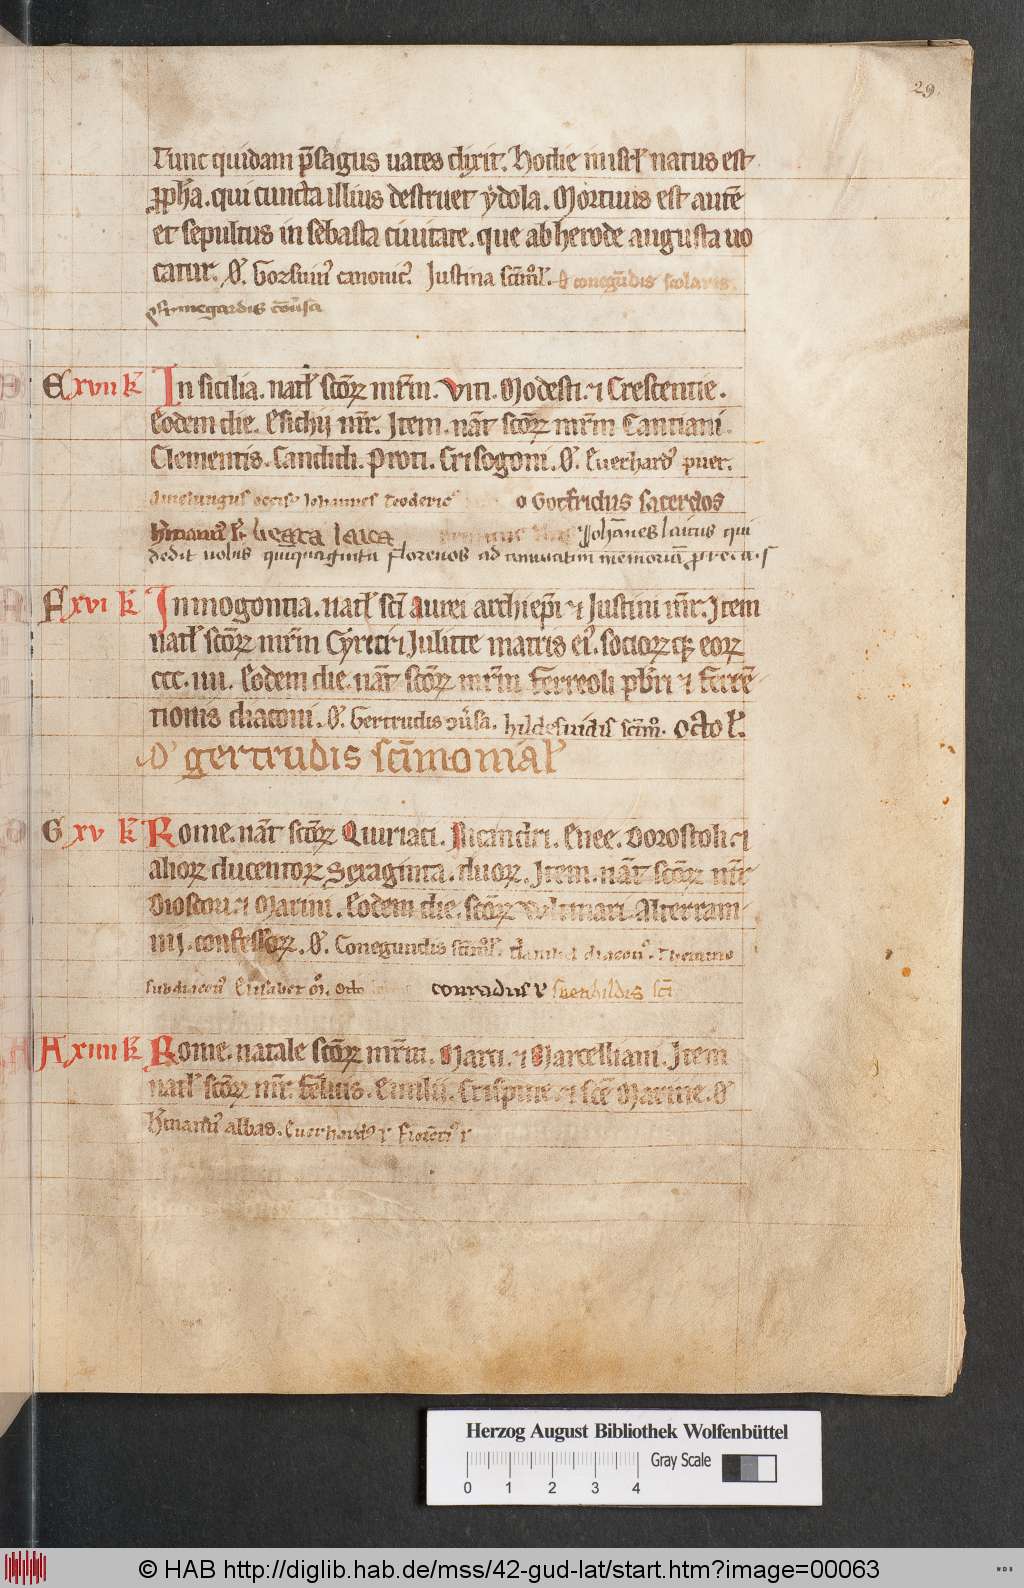 29.
Tunc quidam p̄sagus uates dixit. Hodie in isrl̓ natus est
ꝓph̄a. qui cuncta illius destruet ẏdola. Mortuus est autē
et sepultus in sebasta ciuitate. que ab herode augusta uo
catur. O᷒. Gorswin᷒ canonic᷒. Justina sc̄imo̓l̓. O᷒ conegūdis scolaris.
Ermegardis cōuersa
E xvii k̄ In sicilia. natl̓ sc̄oꝝ mr̄m. Viti. Modesti. ⁊ Crescentie.
Eodem die. Esichij mr̄. Item. nāt sc̄oꝝ mr̄m Cantiani.
Clementis. Candidi. Proti. Crisogoni. O᷒. Euerhard᷒ puer.
Amelungus Johannes Teoderic᷒ o Gotfridus sacerdos
h̄mann᷒ Johānes laicus qui
dedit nobis quiquaginta florenos ad annuatim memoriā
F xvi k̄ In mogontia. natl̓ sc̄i Aurei archiep̄i ⁊ Justini mr̄. Item
natl̓ sc̄oꝝ mr̄m Cẏrici ⁊ Julitte matris ei᷒. sociorꝝ qꝫ eoꝝ
cccc.iiii. Eodem die. nāt sc̄oꝝ mr̄m Ferreoli pb̄ri ⁊ Ferrē
tionis diaconi. O᷒. Gertrudis 9ūsa. hildesuidis sc̄im̊. octo l̓.
O᷒ gertrudis sc̄imonial̓
G xv k̄ Rome. nāt sc̄oꝝ Quiriaci. Nicandri. Enee. Dorostoli. ⁊
alioꝝ ducentoꝝ Sexaginta. duoꝝ. Item. nāt sc̄oꝝ mr̄
Dioscori. ⁊ Marini. Eodem die. sc̄oꝝ Vulmari. Alterram
nij. confessoꝝ. O᷒. Conegundis sc̄imo̓l̓. diacon᷒. Thetmno
subdiacon᷒ Elisabet conradus sc̄i
A xiiii k̄ Rome. natale sc̄oꝝ mr̄m. Marci. ⁊ Marcelliani. Item
natl̓ sc̄oꝝ mr̄. Felicis. Emilii. Crispine. ⁊ sc̄e Marine. O᷒
h̄mann᷒ abbas. Euerhard᷒
Herzog August Bibliothek Wolfenbüttel
Gray Scale
0 1 2 3 4
© HAB http://diglib.hab.de/mss/42-gud-lat/start.htm?image=00063